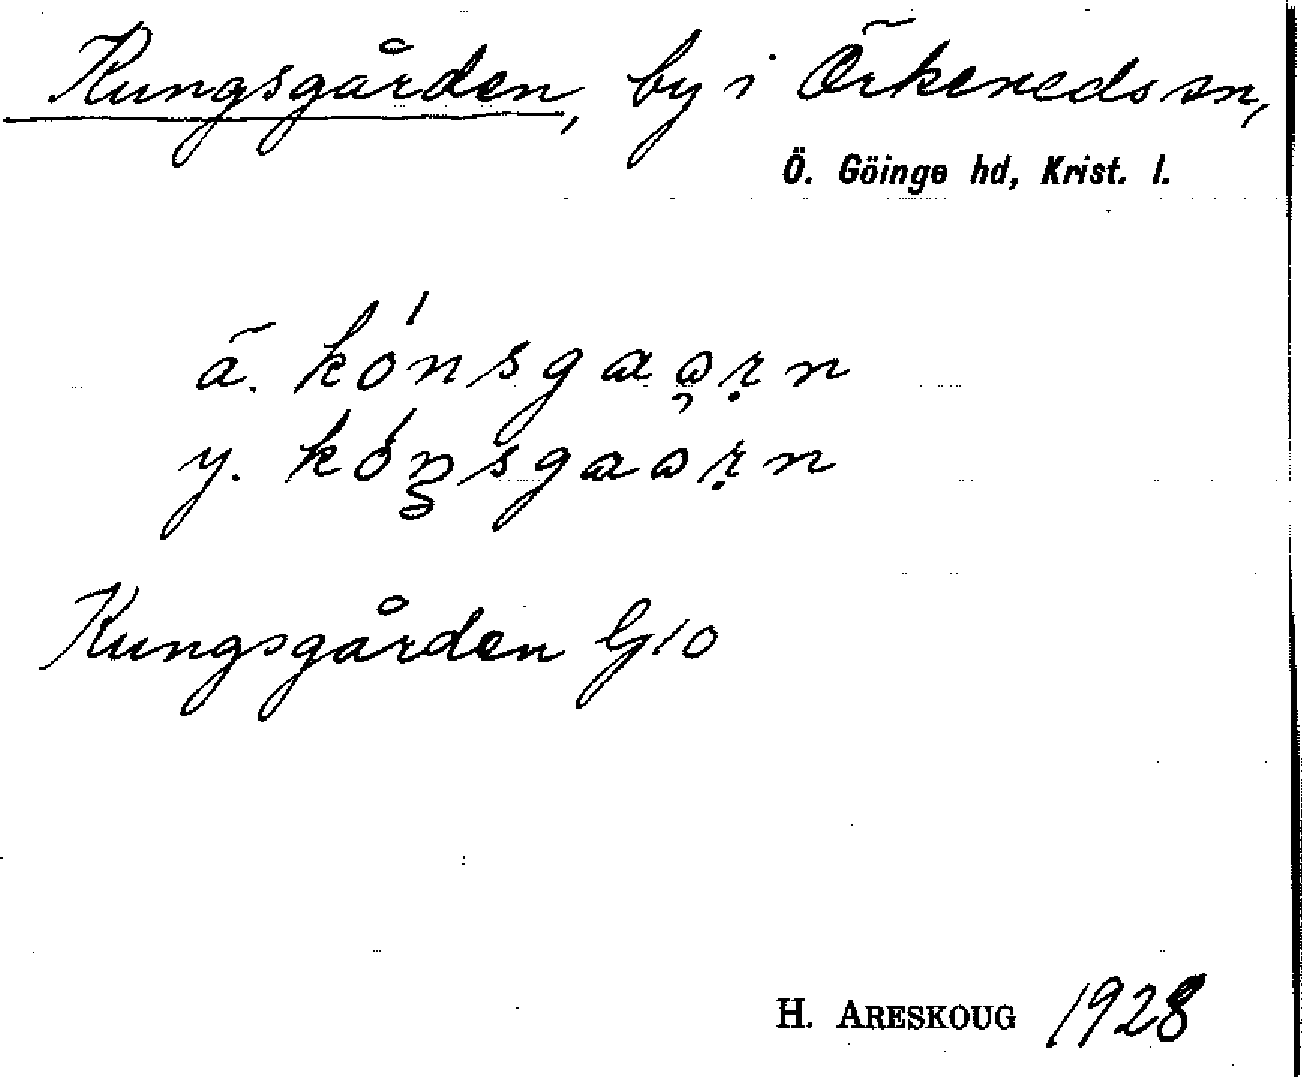 Kungsgården, by i Örkeneds sn,
Ö. Göinge hd, Krist. l.
ä. kónsgaərn
y. kóŋsgaərn
Kungsgården G10
H. ARESKOUG 1928